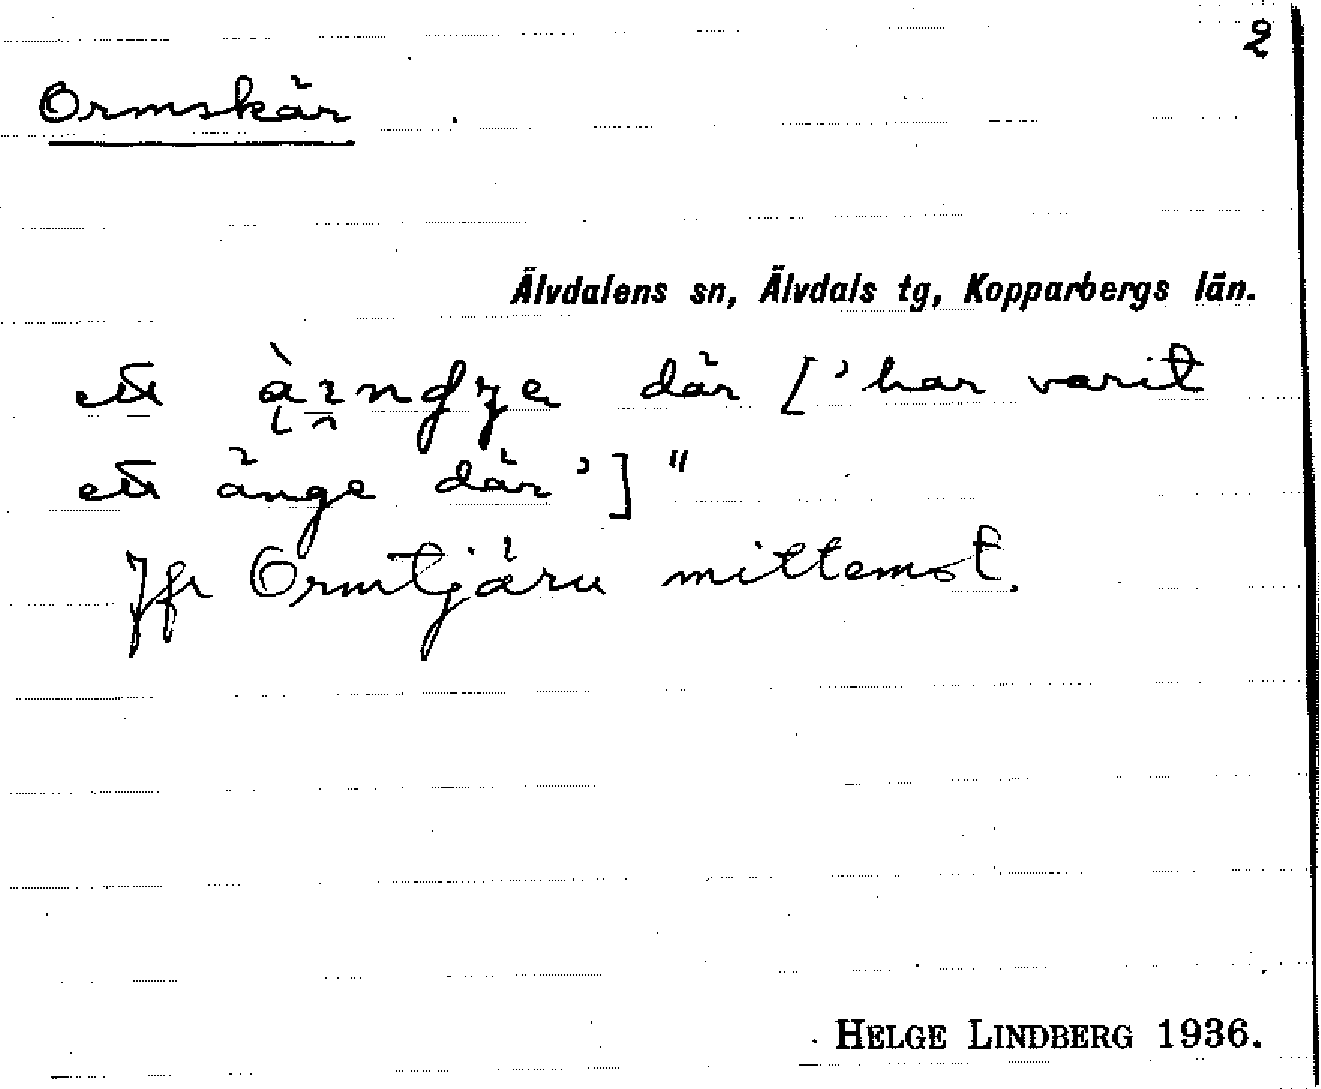 2
Ormskär
Älvdalens sn, Älvdals tg, Kopparbergs län.
ett där ['har varit
ett änge där']"
Jfr Ormtjärn mittemot.
HELGE LINDBERG 1936.